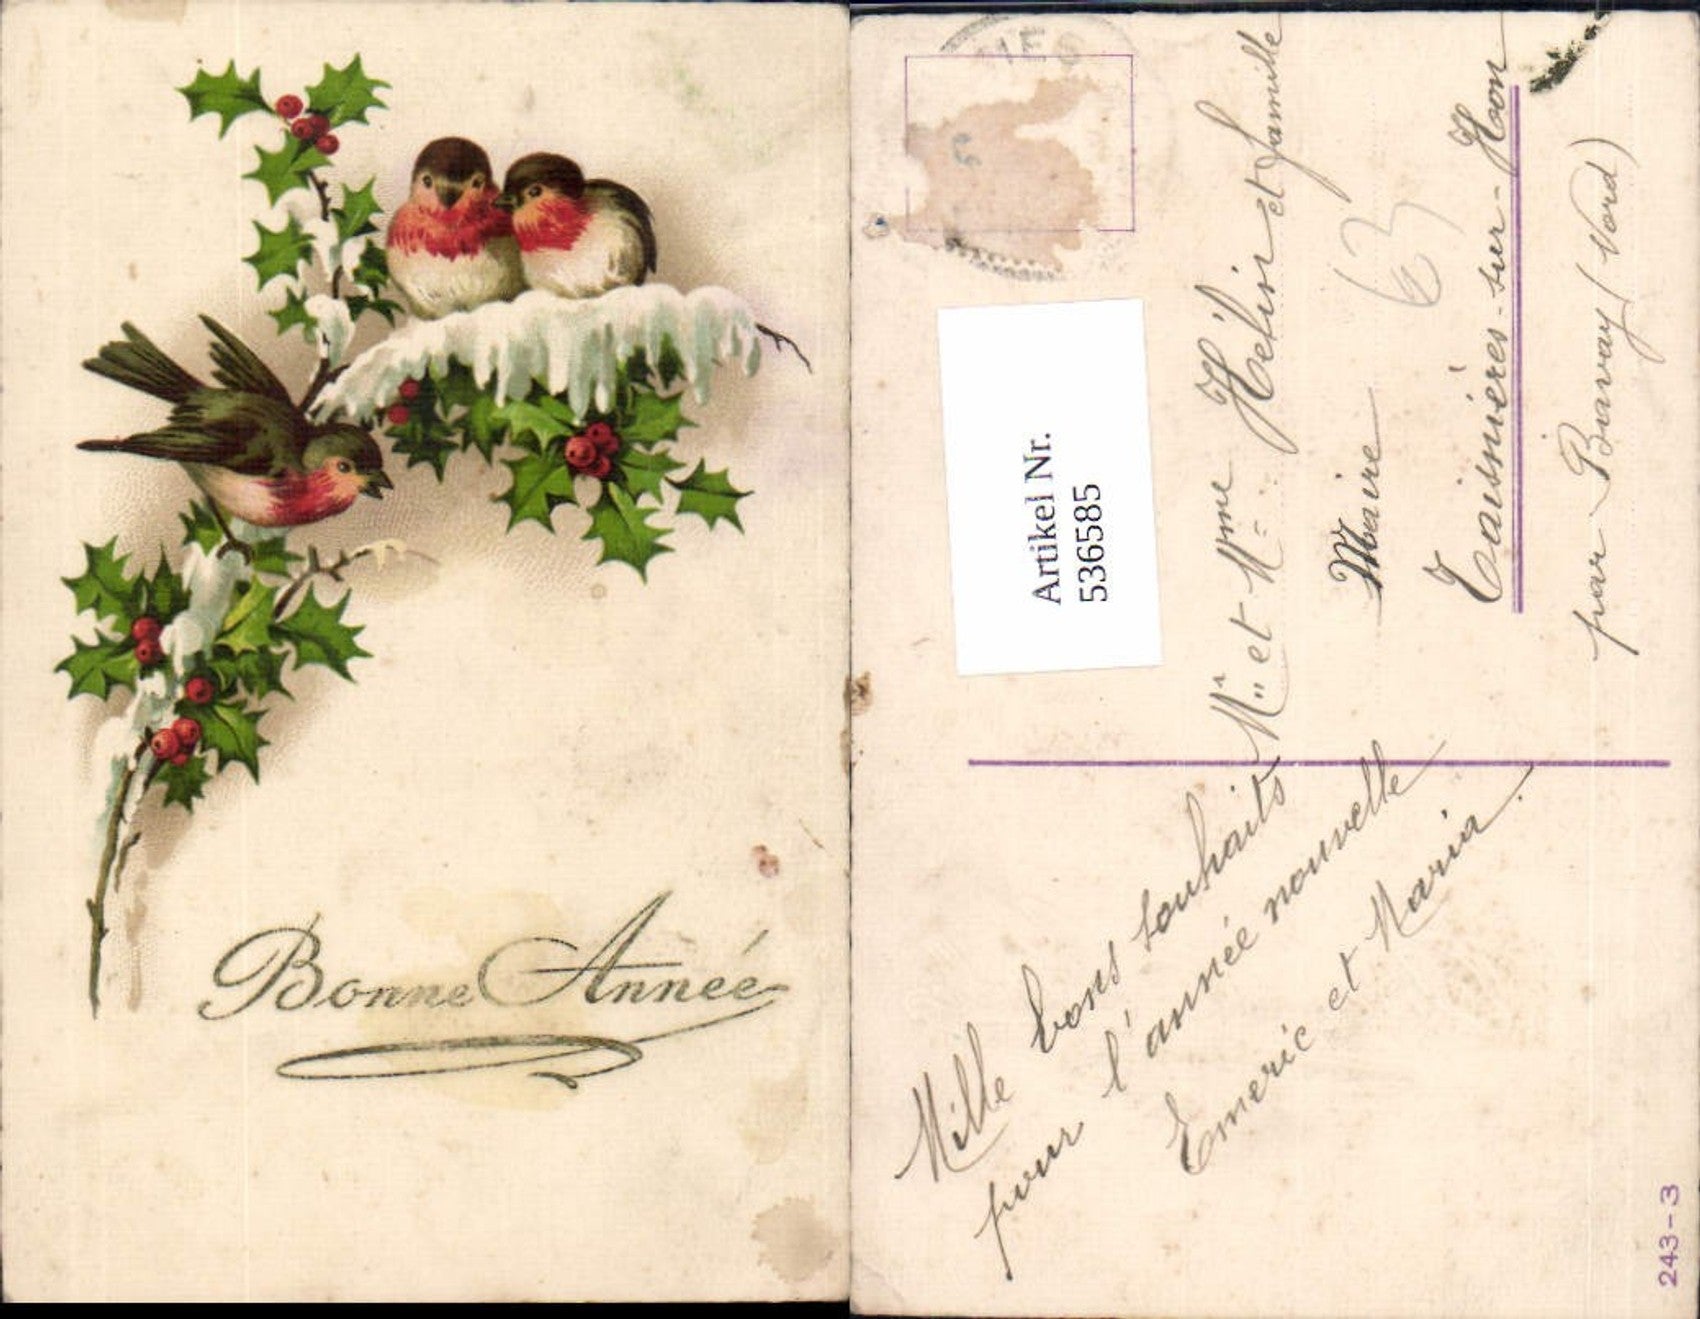 Bonne Année
Artikel Nr.
536585
Mr et Mme Hélin et famille
Maire
Taisnières-sur-Hon
par Bavay (Nord)
63
Mille bons souhaits
pour l'année nouvelle
Emeric et Maria.
243-3